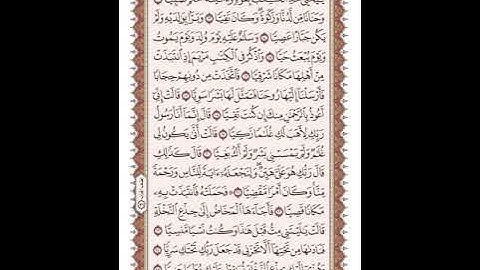 وَحَنَانًا مِّن لَّدُنَّا وَزَكَوٰةً ۖ وَكَانَ تَقِيًّا ۝ وَبَرًّۢا بِوَٰلِدَيْهِ وَلَمْ
يَكُن جَبَّارًا عَصِيًّا ۝ وَسَلَٰمٌ عَلَيْهِ يَوْمَ وُلِدَ وَيَوْمَ يَمُوتُ
وَيَوْمَ يُبْعَثُ حَيًّا ۝ وَٱذْكُرْ فِى ٱلْكِتَٰبِ مَرْيَمَ إِذِ ٱنتَبَذَتْ
مِنْ أَهْلِهَا مَكَانًا شَرْقِيًّا ۝ فَٱتَّخَذَتْ مِن دُونِهِمْ حِجَابًا
فَأَرْسَلْنَآ إِلَيْهَا رُوحَنَا فَتَمَثَّلَ لَهَا بَشَرًا سَوِيًّا ۝ قَالَتْ إِنِّىٓ
أَعُوذُ بِٱلرَّحْمَٰنِ مِنكَ إِن كُنتَ تَقِيًّا ۝ قَالَ إِنَّمَآ أَنَا۠ رَسُولُ
رَبِّكِ لِأَهَبَ لَكِ غُلَٰمًا زَكِيًّا ۝ قَالَتْ أَنَّىٰ يَكُونُ لِى
غُلَٰمٌ وَلَمْ يَمْسَسْنِى بَشَرٌ وَلَمْ أَكُ بَغِيًّا ۝ قَالَ كَذَٰلِكِ
قَالَ رَبُّكِ هُوَ عَلَىَّ هَيِّنٌ ۖ وَلِنَجْعَلَهُۥٓ ءَايَةً لِّلنَّاسِ وَرَحْمَةً
مِّنَّا ۚ وَكَانَ أَمْرًا مَّقْضِيًّا ۝ فَحَمَلَتْهُ فَٱنتَبَذَتْ بِهِۦ
مَكَانًا قَصِيًّا ۝ فَأَجَآءَهَا ٱلْمَخَاضُ إِلَىٰ جِذْعِ ٱلنَّخْلَةِ
قَالَتْ يَٰلَيْتَنِى مِتُّ قَبْلَ هَٰذَا وَكُنتُ نَسْيًا مَّنسِيًّا ۝
فَنَادَىٰهَا مِن تَحْتِهَآ أَلَّا تَحْزَنِى قَدْ جَعَلَ رَبُّكِ تَحْتَكِ سَرِيًّا ۝